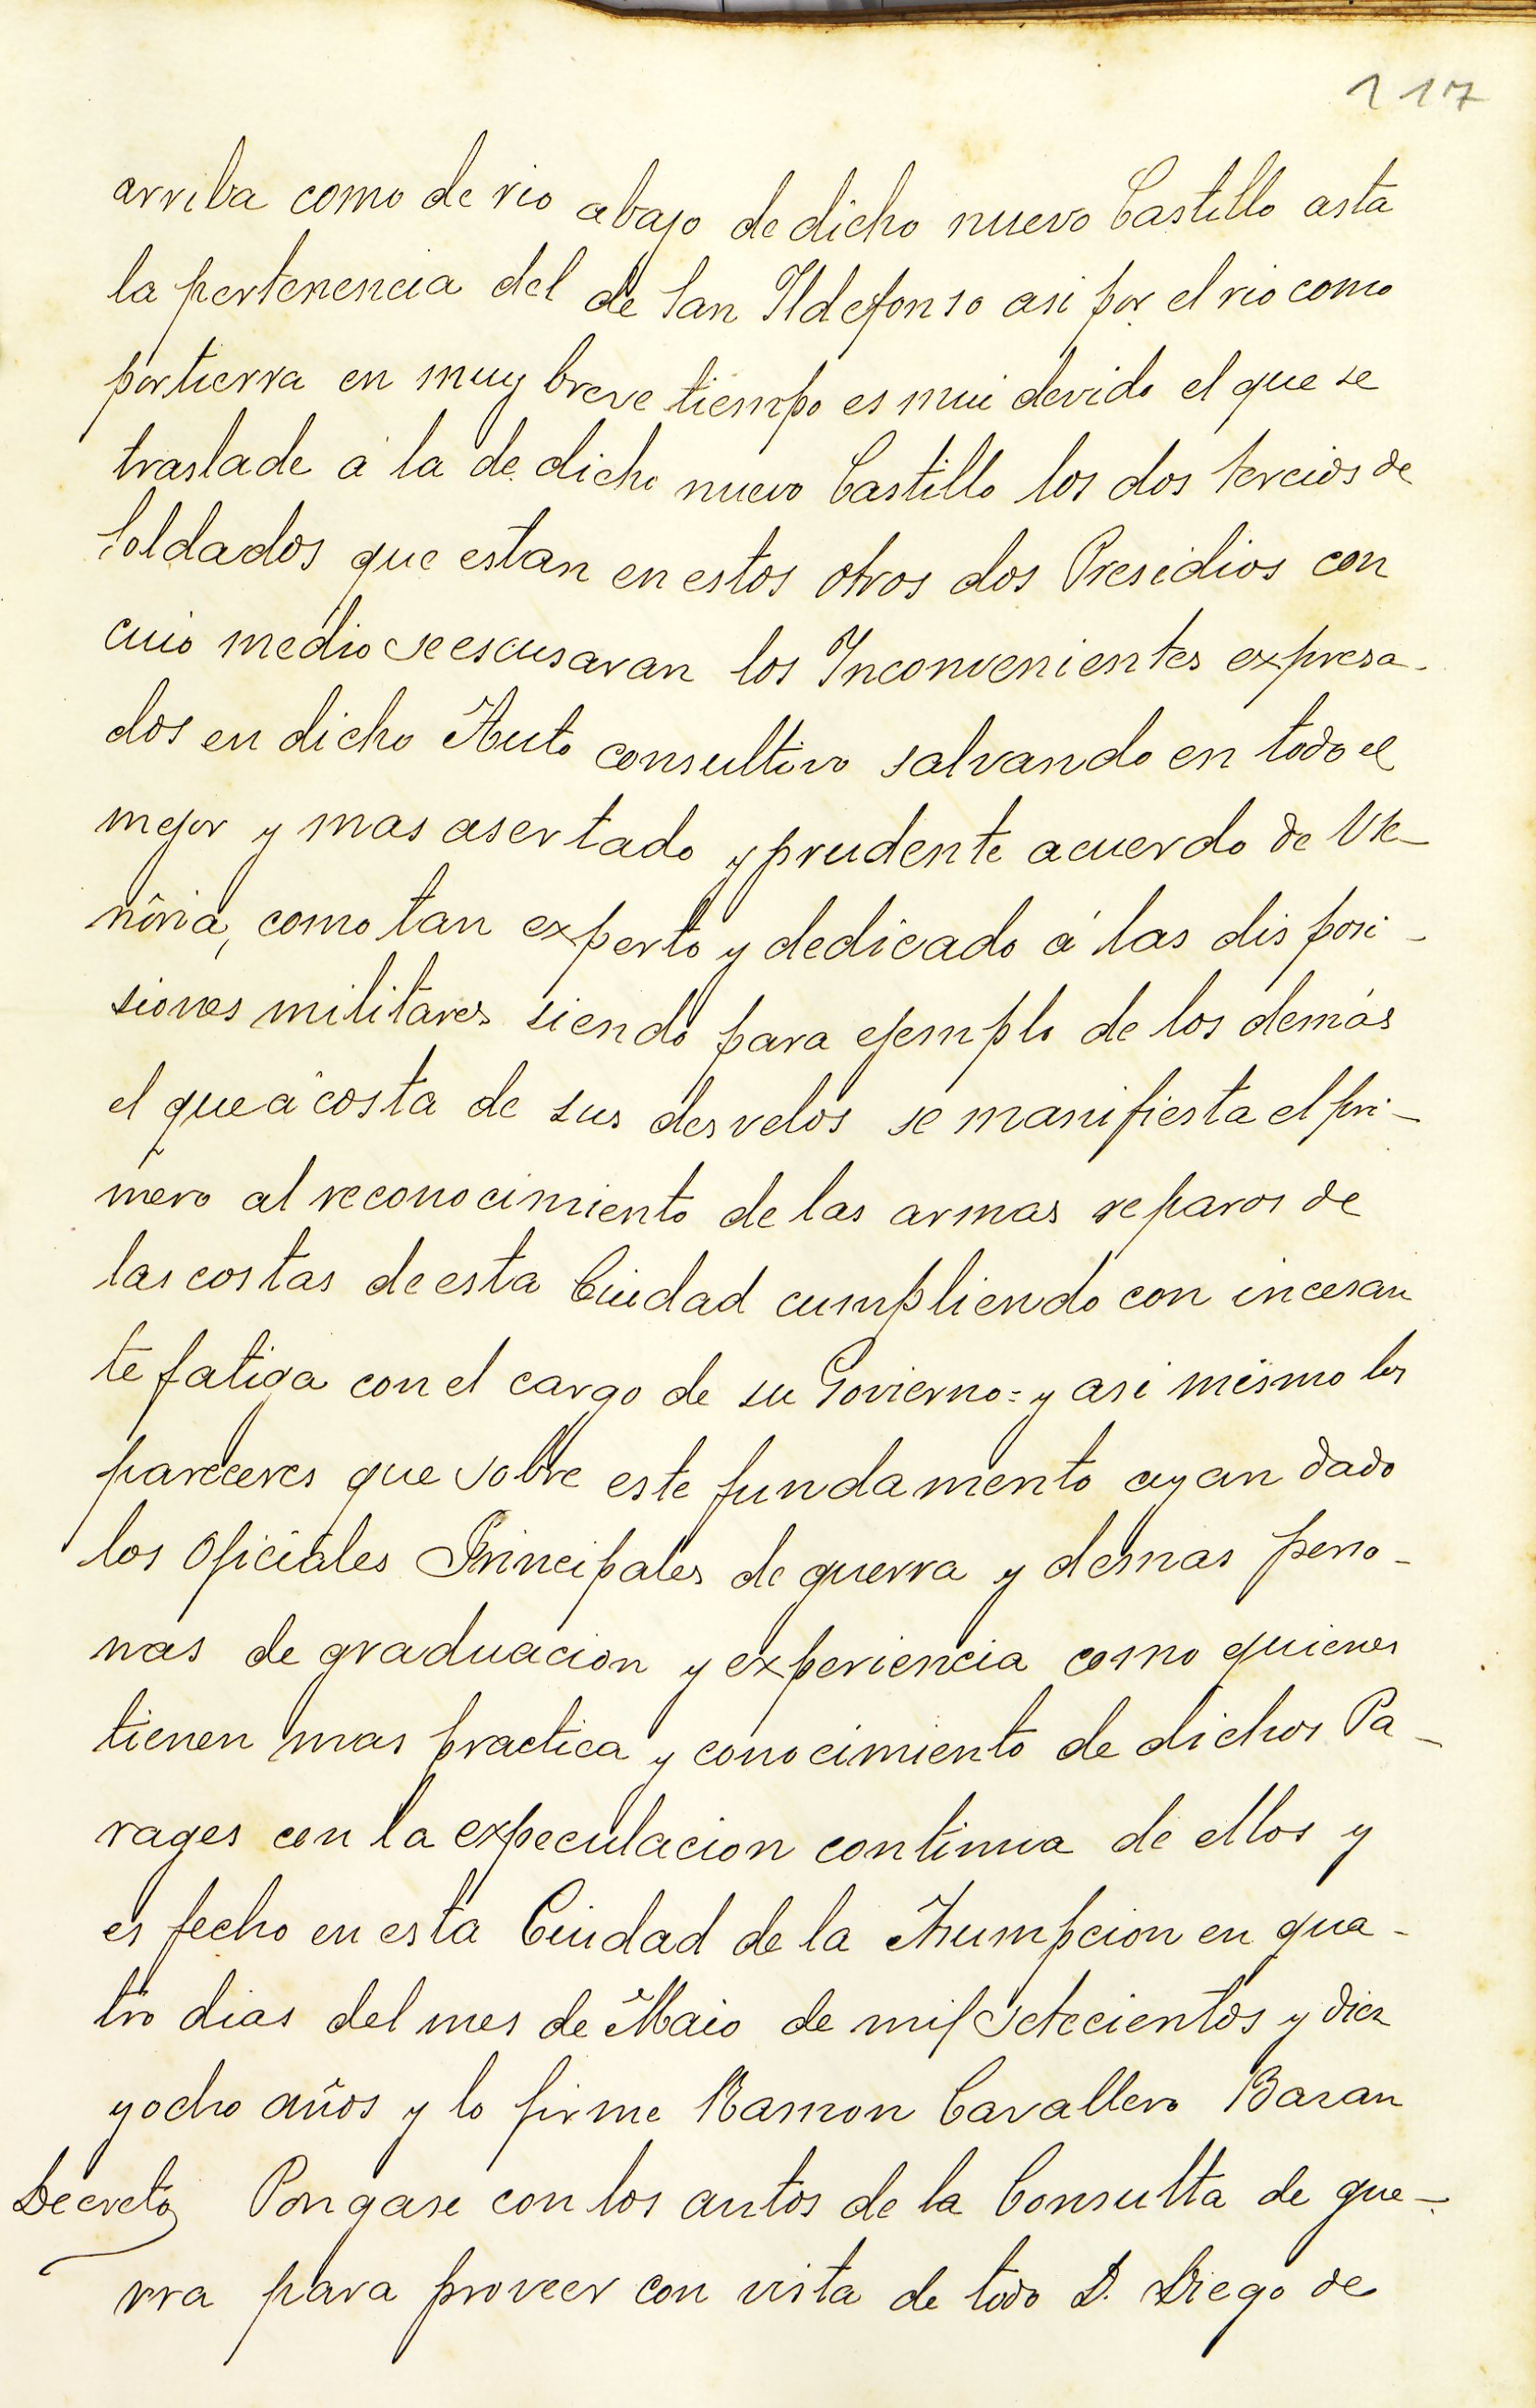 117
arriba como de rio abajo de dicho nuevo Castillo asta
la pertenencia del de San Ildefonso asi por el rio como
por tierra en muy breve tiempo es mui devido el que se
traslade á la de dicho nuevo Castillo los dos tercios de
Soldados que estan en estos otros dos Presidios con
cuio medio se escusaran los Inconvenientes expresa-
dos en dicho Auto consultivo salvando en todo el
mejor y mas asertado y prudente acuerdo de Vse-
ñoria, como tan experto y dedicado á las disposi-
siones militares siendo para ejemplo de los demás
el que á costa de sus desvelos se manifiesta el pri-
mero al reconocimiento de las armas reparos de
las costas de esta Ciudad cumpliendo con incesan
te fatiga con el cargo de su Govierno = y asi mismo los
pareceres que sobre este fundamento ayan dado
los Oficiales Principales de guerra y demas perso-
nas de graduacion y experiencia como quienes
tienen mas practica y conocimiento de dichos Pa-
rages con la expeculacion continua de ellos y
es fecho en esta Ciudad de la Asumpcion en qua-
tro dias del mes de Maio de mil setecientos y diez
y ocho años y lo firme Ramon Cavallero Bazan
Decreto Pongase con los autos de la Consulta de gue-
rra para proveer con vista de todo D. Diego de